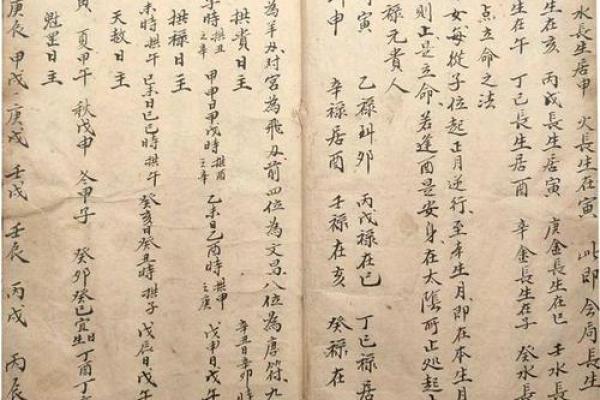 水長生居申 火長生在寅 此即会局長生
生在亥 丙戊長生居寅 庚金長生在巳 壬水長
生在午 丁己長生居酉 辛金長生在子 癸水長
点立命之法
女每從子位起正月逆行至本生月即在本生月
則止是立命若逢酉是安身在太陰所止处起
禄元貴人
寅 乙禄到卯 丙戊禄在巳 丁己禄居
申 辛禄居酉 壬禄在亥 癸禄在
為羊刃对宮為飛刃前四位為文昌八位為唐符九
拱貴日主
子時拱丑 甲申日甲戌時拱酉 乙未日乙酉時拱申 辛丑日辛卯時
拱禄日主
時拱午 己未日己巳時拱午 癸亥日癸丑時拱子 戊辰日戊午
天赦日主
寅 夏甲午 秋戊申 冬甲子 癸卯癸巳宜生日丁酉丁
魁罡日主
庚辰 甲戌 庚戌 壬戌 壬辰 丙戌 丙辰